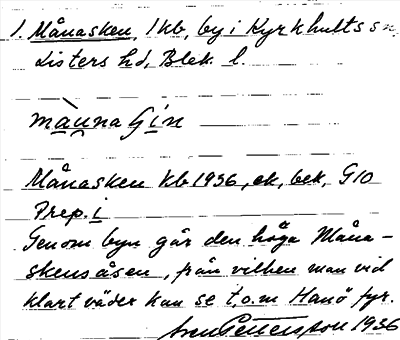 1. Månasken, 1 kb, by i Kyrkhults sn,
Listers hd, Blek. l.
Månasken kb 1936, ek, bek, G10
Prep. i
Genom byn går den höga Måna-
skensåsen, från vilken man vid
klart väder kan se t.o.m Hanö fyr.
Sven Pettersson 1936